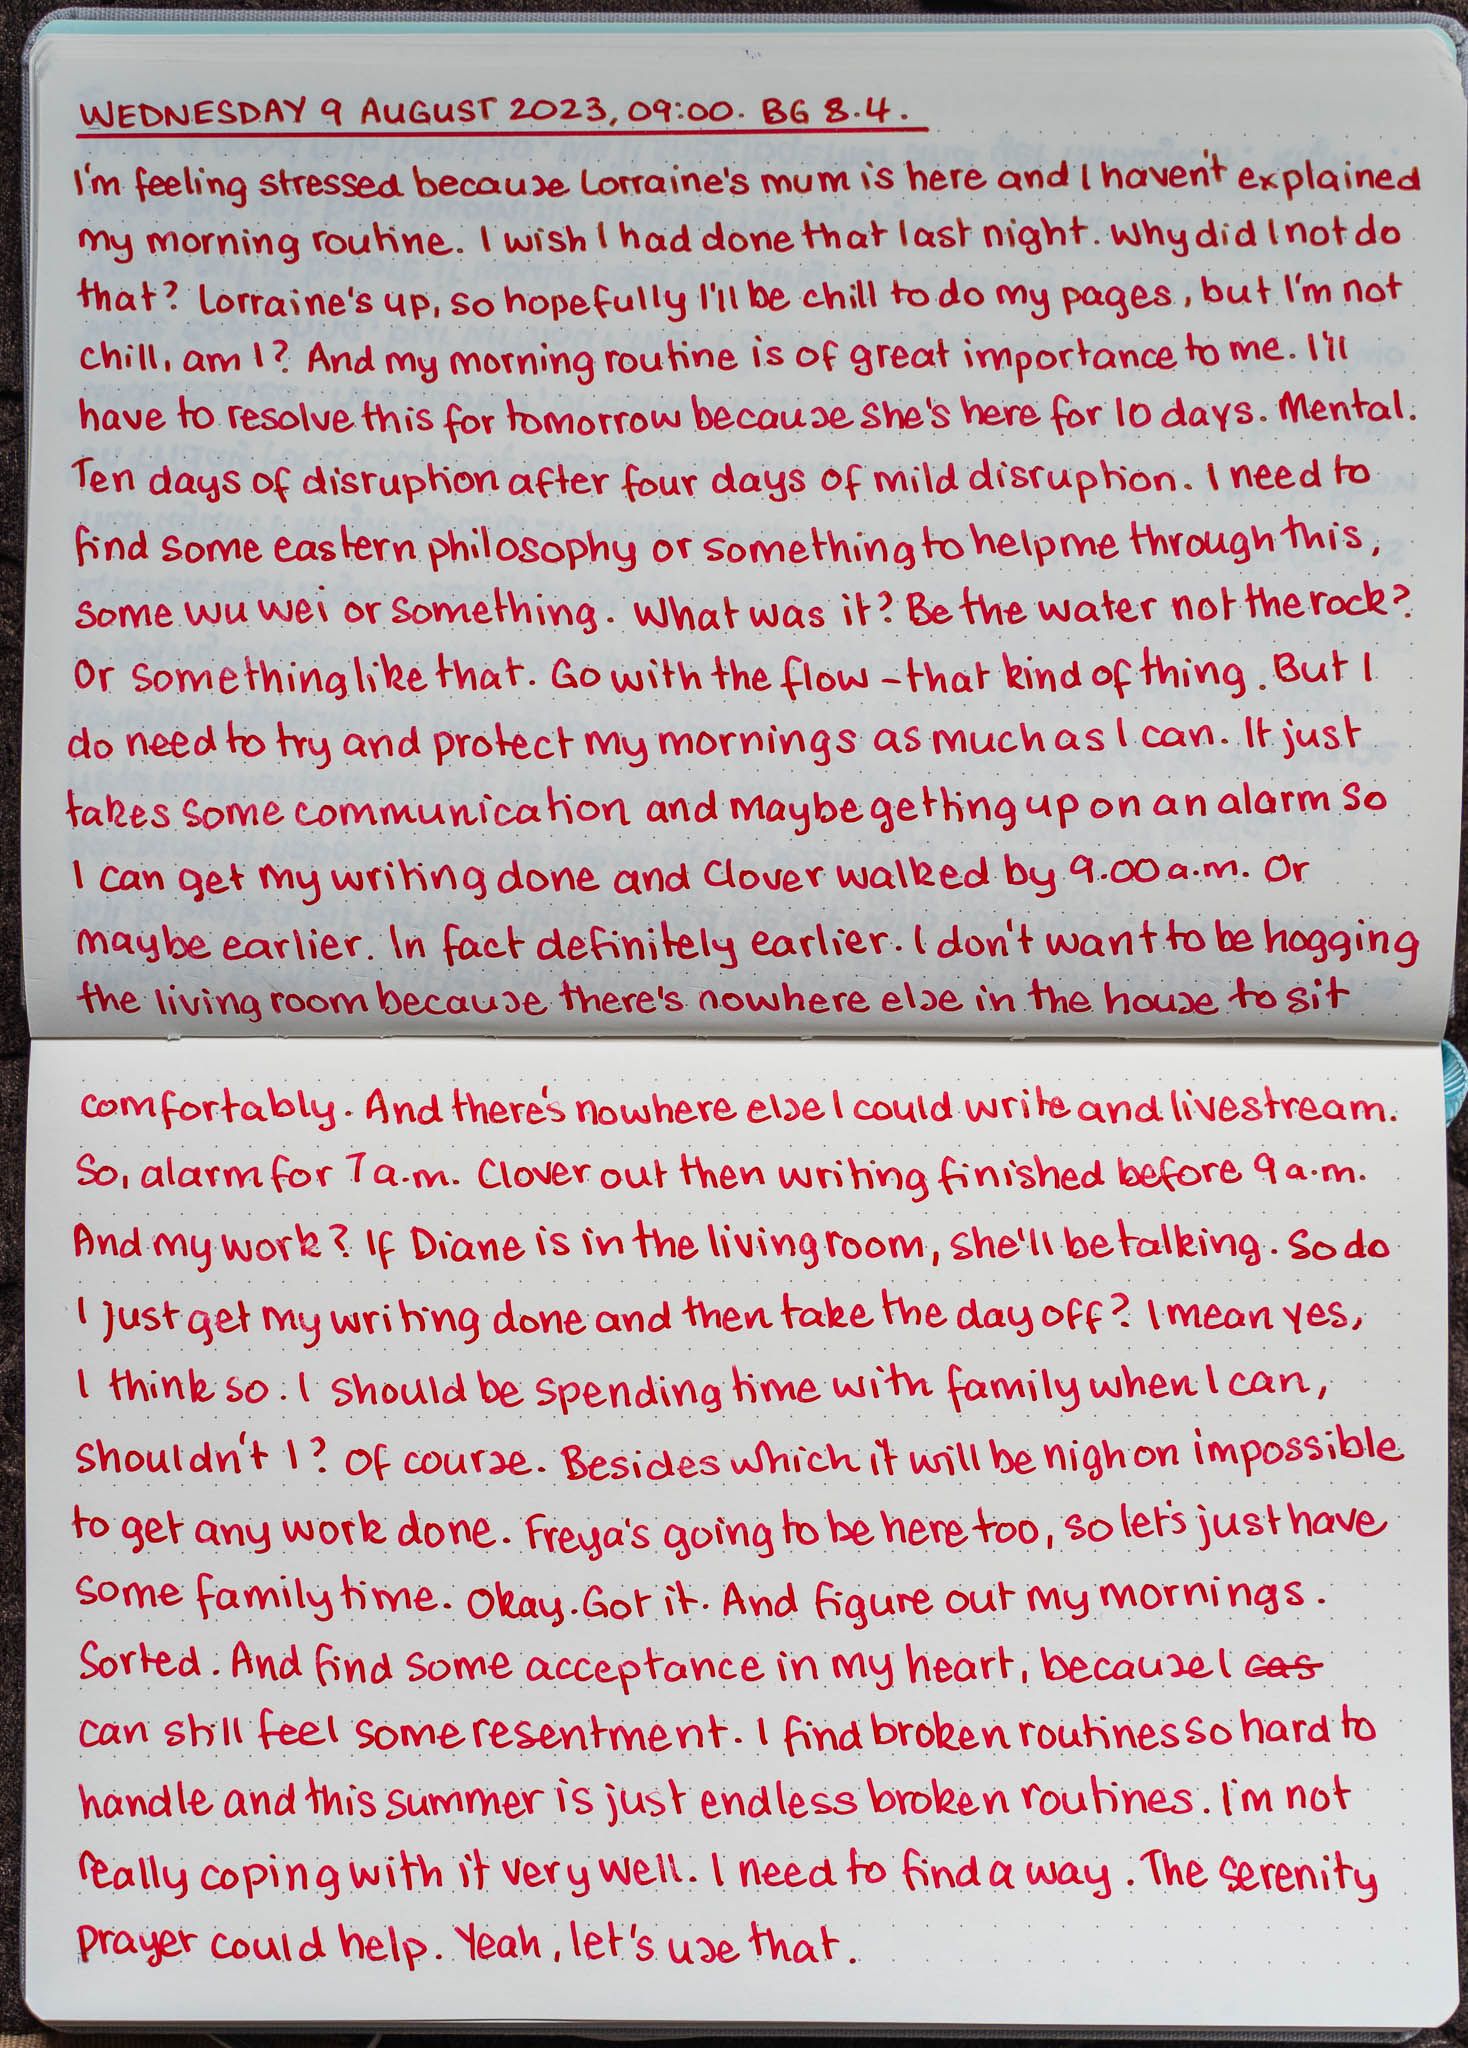 WEDNESDAY 9 AUGUST 2023, 09:00. BG 8.4.
I'm feeling stressed because Lorraine's mum is here and I haven't explained
my morning routine. I wish I had done that last night. Why did I not do
that? Lorraine's up, so hopefully I'll be chill to do my pages, but I'm not
chill, am I? And my morning routine is of great importance to me. I'll
have to resolve this for tomorrow because she's here for 10 days. Mental.
Ten days of disruption after four days of mild disruption. I need to
find some eastern philosophy or something to help me through this,
some wu wei or something. What was it? Be the water not the rock?
Or something like that. Go with the flow - that kind of thing. But I
do need to try and protect my mornings as much as I can. It just
takes some communication and maybe getting up on an alarm so
I can get my writing done and Clover walked by 9.00 a.m. Or
maybe earlier. In fact definitely earlier. I don't want to be hogging
the living room because there's nowhere else in the house to sit
comfortably. And there's nowhere else I could write and livestream.
So, alarm for 7 a.m. Clover out then writing finished before 9 a.m.
And my work? If Diane is in the living room, she'll be talking. So do
I just get my writing done and then take the day off? I mean yes,
I think so. I should be spending time with family when I can,
shouldn't I? Of course. Besides which it will be nigh on impossible
to get any work done. Freya's going to be here too, so let's just have
some family time. Okay. Got it. And figure out my mornings.
Sorted. And find some acceptance in my heart, because I cas
can still feel some resentment. I find broken routines so hard to
handle and this summer is just endless broken routines. I'm not
really coping with it very well. I need to find a way. The serenity
prayer could help. Yeah, let's use that.